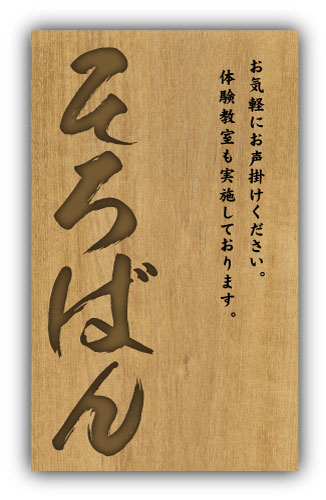 お気軽にお声掛けください。
体験教室も実施しております。
そろばん